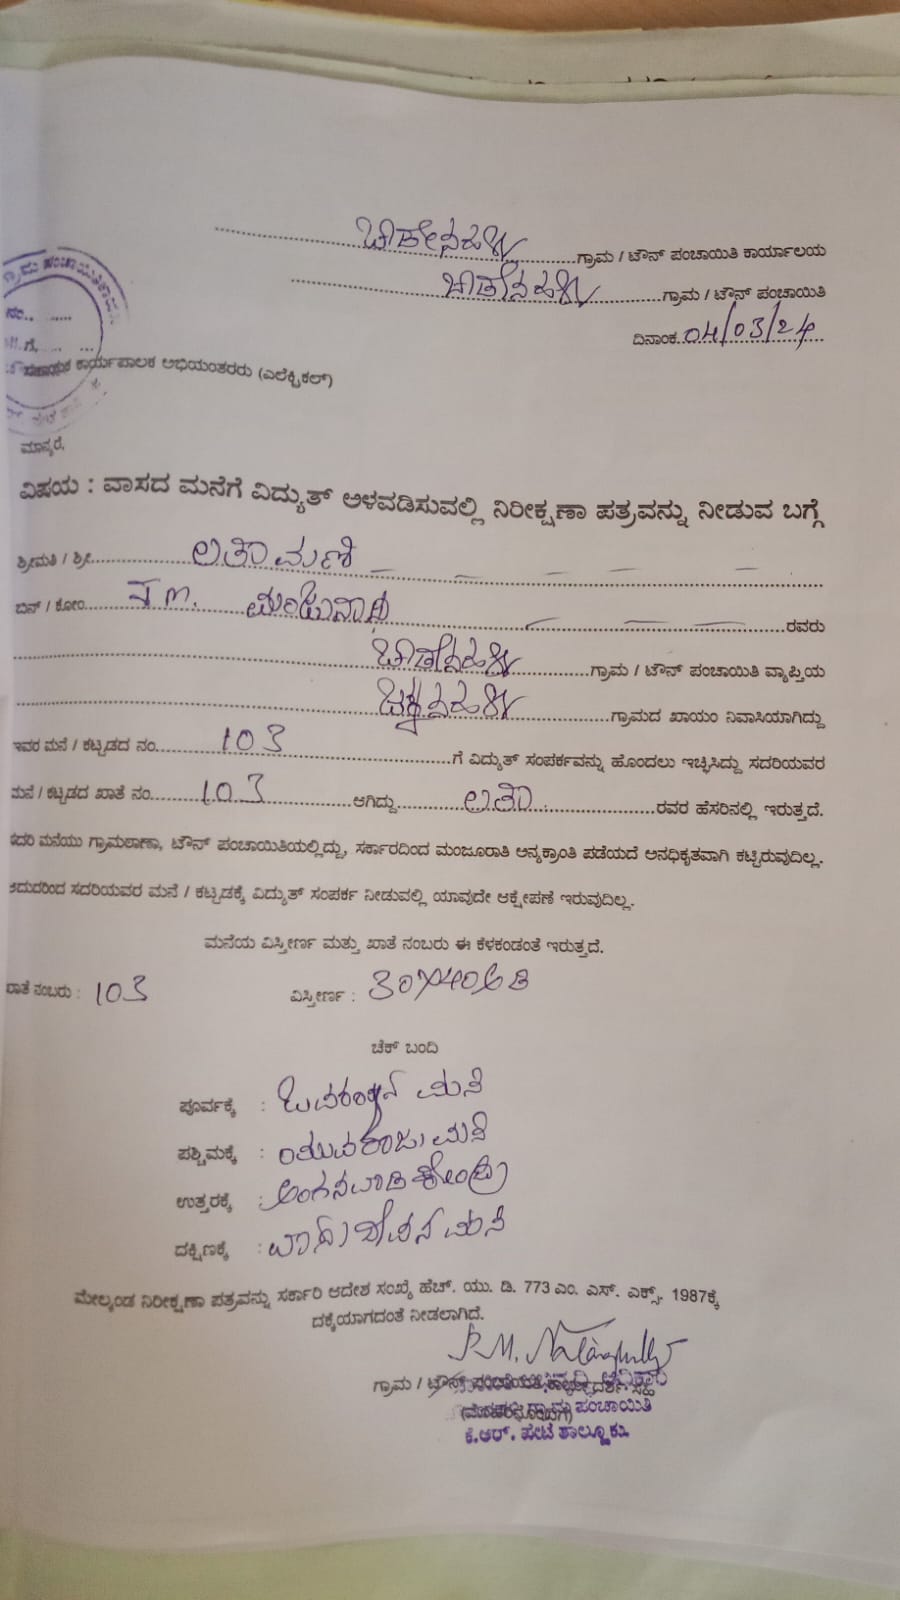 ಗ್ರಾಮ / ಟೌನ್ ಪಂಚಾಯಿತಿ ಕಾರ್ಯಾಲಯ
ಗ್ರಾಮ / ಟೌನ್ ಪಂಚಾಯಿತಿ
ದಿನಾಂಕ 04/03/24
ಕಾರ್ಯಪಾಲಕ ಅಭಿಯಂತರರು (ಎಲೆಕ್ಟ್ರಿಕಲ್)
ಮಾನ್ಯರೆ,
ವಿಷಯ : ವಾಸದ ಮನೆಗೆ ವಿದ್ಯುತ್ ಅಳವಡಿಸುವಲ್ಲಿ ನಿರೀಕ್ಷಣಾ ಪತ್ರವನ್ನು ನೀಡುವ ಬಗ್ಗೆ
ಶ್ರೀಮತಿ / ಶ್ರೀ ಲತಾಮಣಿ
ಬಿನ್ / ಕೋಂ ಮಂಜುನಾಥ ರವರು
ಗ್ರಾಮ / ಟೌನ್ ಪಂಚಾಯಿತಿ ವ್ಯಾಪ್ತಿಯ
ಗ್ರಾಮದ ಖಾಯಂ ನಿವಾಸಿಯಾಗಿದ್ದು
ಇವರ ಮನೆ / ಕಟ್ಟಡದ ನಂ. 103 ಗೆ ವಿದ್ಯುತ್ ಸಂಪರ್ಕವನ್ನು ಹೊಂದಲು ಇಚ್ಛಿಸಿದ್ದು ಸದರಿಯವರ
ಮನೆ / ಕಟ್ಟಡದ ಖಾತೆ ನಂ. 103 ಆಗಿದ್ದು ಲತಾ ರವರ ಹೆಸರಿನಲ್ಲಿ ಇರುತ್ತದೆ.
ಸದರಿ ಮನೆಯು ಗ್ರಾಮಠಾಣಾ, ಟೌನ್ ಪಂಚಾಯಿತಿಯಲ್ಲಿದ್ದು, ಸರ್ಕಾರದಿಂದ ಮಂಜೂರಾತಿ ಅನ್ಯಕ್ರಾಂತಿ ಪಡೆಯದೆ ಅನಧಿಕೃತವಾಗಿ ಕಟ್ಟಿರುವುದಿಲ್ಲ.
ಆದುದರಿಂದ ಸದರಿಯವರ ಮನೆ / ಕಟ್ಟಡಕ್ಕೆ ವಿದ್ಯುತ್ ಸಂಪರ್ಕ ನೀಡುವಲ್ಲಿ ಯಾವುದೇ ಆಕ್ಷೇಪಣೆ ಇರುವುದಿಲ್ಲ.
ಮನೆಯ ವಿಸ್ತೀರ್ಣ ಮತ್ತು ಖಾತೆ ನಂಬರು ಈ ಕೆಳಕಂಡಂತೆ ಇರುತ್ತದೆ.
ಖಾತೆ ನಂಬರು : 103 ವಿಸ್ತೀರ್ಣ : 30X40
ಚೆಕ್ ಬಂದಿ
ಪೂರ್ವಕ್ಕೆ : ಮನೆ
ಪಶ್ಚಿಮಕ್ಕೆ : ಯುವರಾಜು ಮನೆ
ಉತ್ತರಕ್ಕೆ : ಅಂಗನವಾಡಿ ಕೇಂದ್ರ
ದಕ್ಷಿಣಕ್ಕೆ : ಮನೆ
ಮೇಲ್ಕಂಡ ನಿರೀಕ್ಷಣಾ ಪತ್ರವನ್ನು ಸರ್ಕಾರಿ ಆದೇಶ ಸಂಖ್ಯೆ ಹೆಚ್. ಯು. ಡಿ. 773 ಎಂ. ಎಸ್. ಎಕ್ಸ್. 1987ಕ್ಕೆ
ದಕ್ಕೆಯಾಗದಂತೆ ನೀಡಲಾಗಿದೆ.
ಗ್ರಾಮ / ಟೌನ್ ಪಂಚಾಯಿತಿ
ಗ್ರಾಮ ಪಂಚಾಯಿತಿ
ಕೆ.ಆರ್. ಪೇಟೆ ತಾಲ್ಲೂಕು.